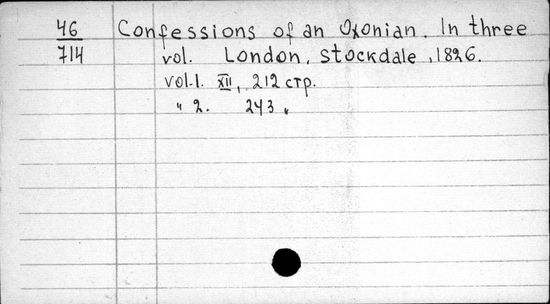 46 Confessions of an Oxonian. In three
714 vol. London, Stockdale, 1826.
vol. 1. XII, 212 стр.
" 2. 243 "